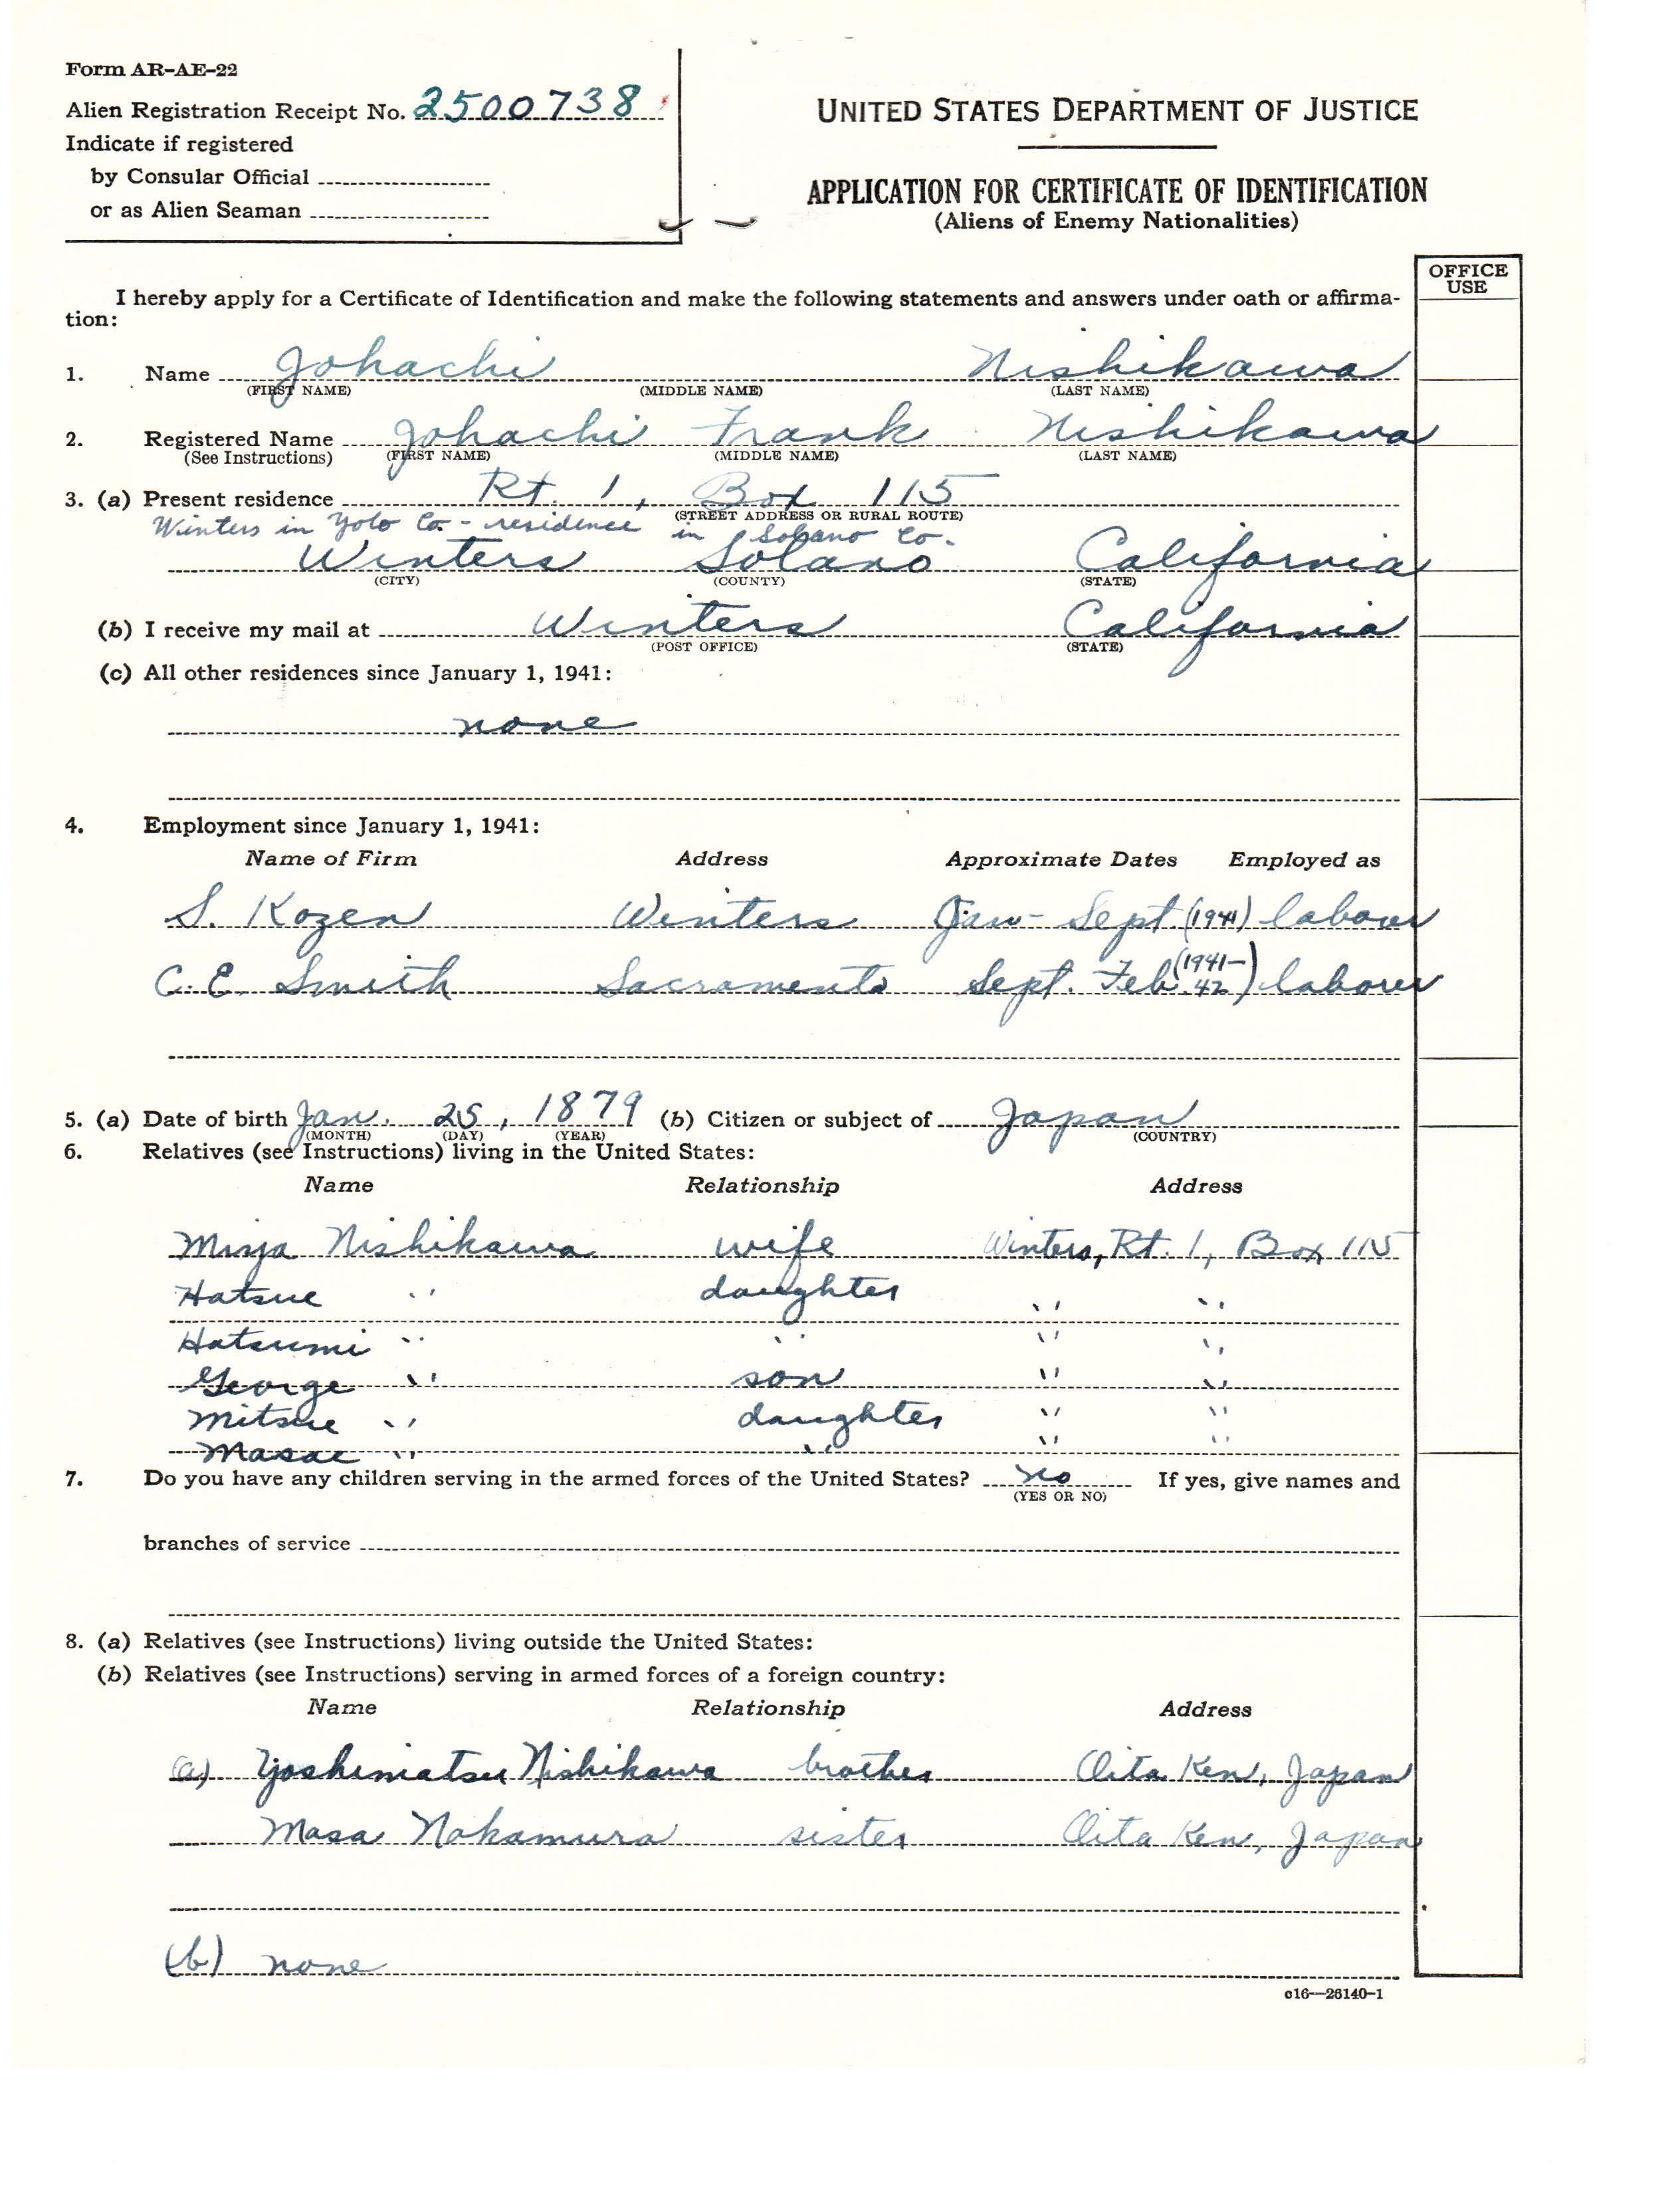 Form AR-AE-22
Alien Registration Receipt No. 2500738
Indicate if registered
by Consular Official
or as Alien Seaman
UNITED STATES DEPARTMENT OF JUSTICE
APPLICATION FOR CERTIFICATE OF IDENTIFICATION
(Aliens of Enemy Nationalities)
OFFICE
USE
I hereby apply for a Certificate of Identification and make the following statements and answers under oath or affirma-
tion:
1. Name Johachi Nishikawa
(FIRST NAME) (MIDDLE NAME) (LAST NAME)
2. Registered Name Johachi Frank Nishikawa
(See Instructions) (FIRST NAME) (MIDDLE NAME) (LAST NAME)
3. (a) Present residence Rt. 1, Box 115
(STREET ADDRESS OR RURAL ROUTE)
Winters in Yolo Co. - residence in Solano Co.
Winters Solano California
(CITY) (COUNTY) (STATE)
(b) I receive my mail at Winters California
(POST OFFICE) (STATE)
(c) All other residences since January 1, 1941:
none
4. Employment since January 1, 1941:
Name of Firm Address Approximate Dates Employed as
S. Kozen Winters Jan - Sept. (1941) laborer
C. E. Smith Sacramento Sept. Feb. (1941-42) laborer
5. (a) Date of birth Jan. 25, 1879 (b) Citizen or subject of Japan
(MONTH) (DAY) (YEAR) (COUNTRY)
6. Relatives (see Instructions) living in the United States:
Name Relationship Address
Misja Nishikawa wife Winters, Rt. 1, Box 115
Hatsue " daughter " "
Hatsumi " " " "
George " son " "
Mitsue " daughter " "
Masae " " " "
7. Do you have any children serving in the armed forces of the United States? no If yes, give names and
(YES OR NO)
branches of service
8. (a) Relatives (see Instructions) living outside the United States:
(b) Relatives (see Instructions) serving in armed forces of a foreign country:
Name Relationship Address
(a) Yoshimatsu Nishikawa brother Oita Ken, Japan
Masa Nakamura sister Oita Ken, Japan
(b) none
c16—26140-1